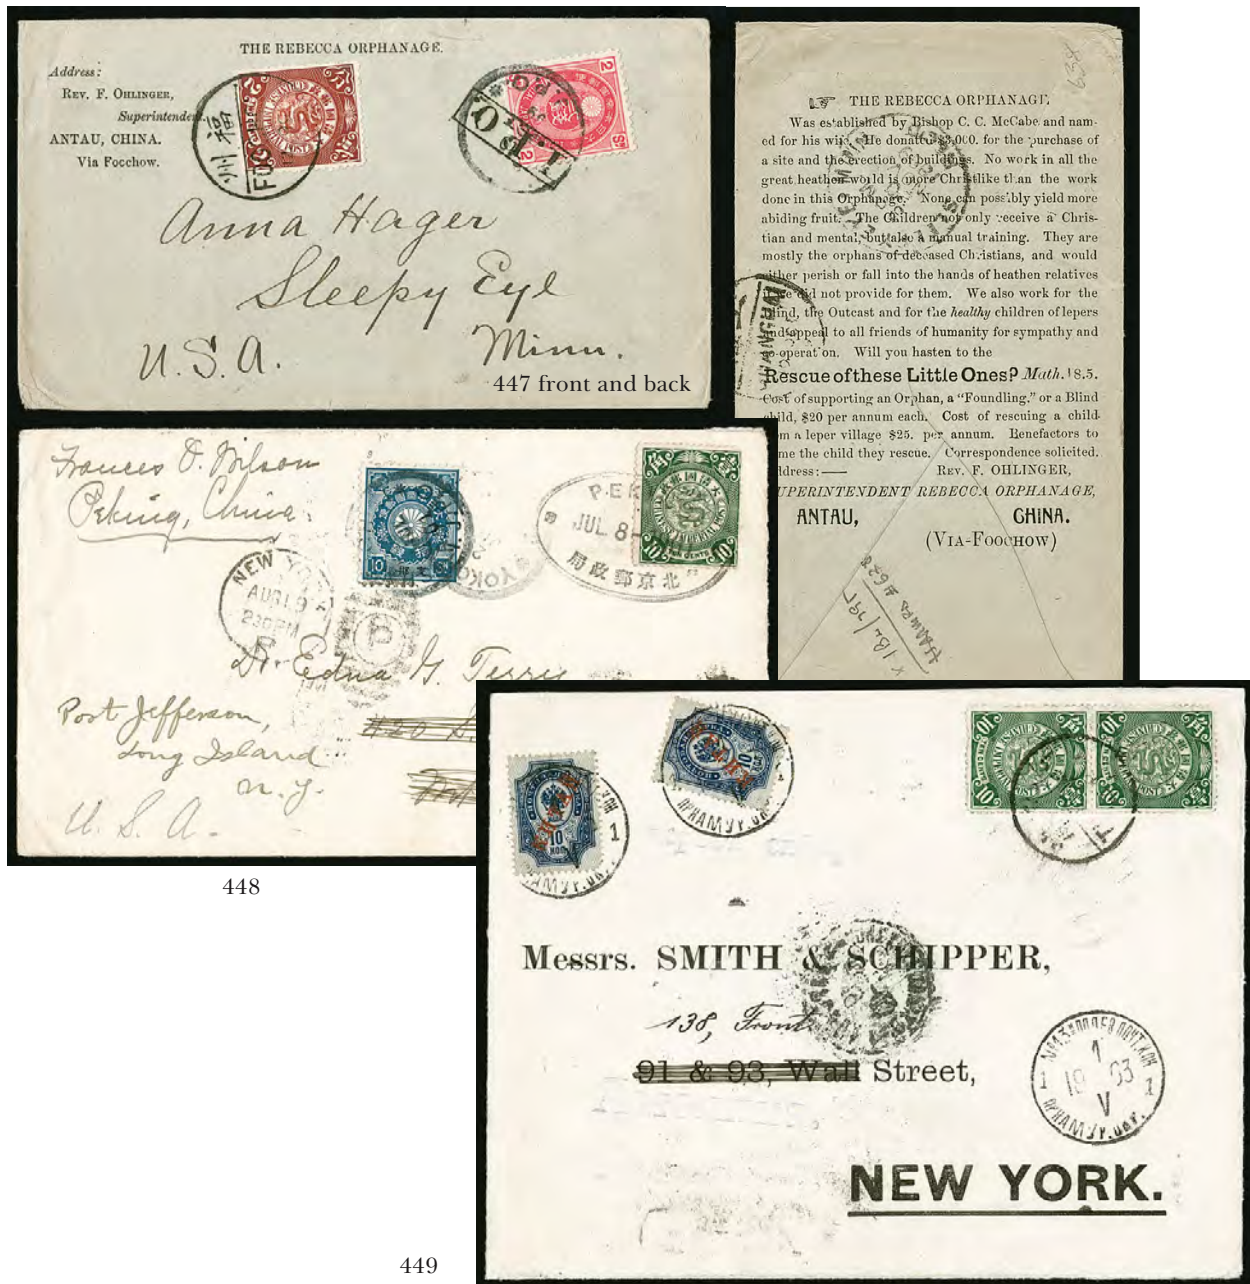 THE REBECCA ORPHANAGE.
Address:
REV. F. OHLINGER,
Superintendent.
ANTAU, CHINA.
Via Foochow.
福州
2
2
I.P.O.
Anna Hager
Sleepy Eye
Minn.
U.S.A.
447 front and back
634
☞ THE REBECCA ORPHANAGE,
Was established by Bishop C. C. McCabe and nam-
ed for his wife. He donated $3,000. for the purchase of
a site and the erection of buildings. No work in all the
great heathen world is more Christlike than the work
done in this Orphanage. None can possibly yield more
abiding fruit. The Children not only receive a Chris-
tian and mental, but also a manual training. They are
mostly the orphans of deceased Christians, and would
either perish or fall into the hands of heathen relatives
if we did not provide for them. We also work for the
Blind, the Outcast and for the healthy children of lepers
and appeal to all friends of humanity for sympathy and
co-operation. Will you hasten to the
Rescue of these Little Ones? Math. 18.5.
Cost of supporting an Orphan, a "Foundling," or a Blind
child, $20 per annum each. Cost of rescuing a child
from a leper village $25. per annum. Benefactors to
name the child they rescue. Correspondence solicited.
Address:—— REV. F. OHLINGER,
SUPERINTENDENT REBECCA ORPHANAGE,
ANTAU, CHINA.
(VIA-FOOCHOW)
Frances O. Wilson
Peking, China.
NEW YORK
AUG 19
230PM
10
PEK
JUL 8
北京郵政局
10 TEN CENTS 10
Dr. Edna G. Terry
Post Jefferson,
Long Island
N.Y.
U. S. A.
420
448
10
КОП
КИТАЙ
10
КОП
КИТАЙ
10
10
Messrs. SMITH & SCHIPPER,
138, Front
91 & 93, Wall Street,
1
1 19 03 1
V
NEW YORK.
449